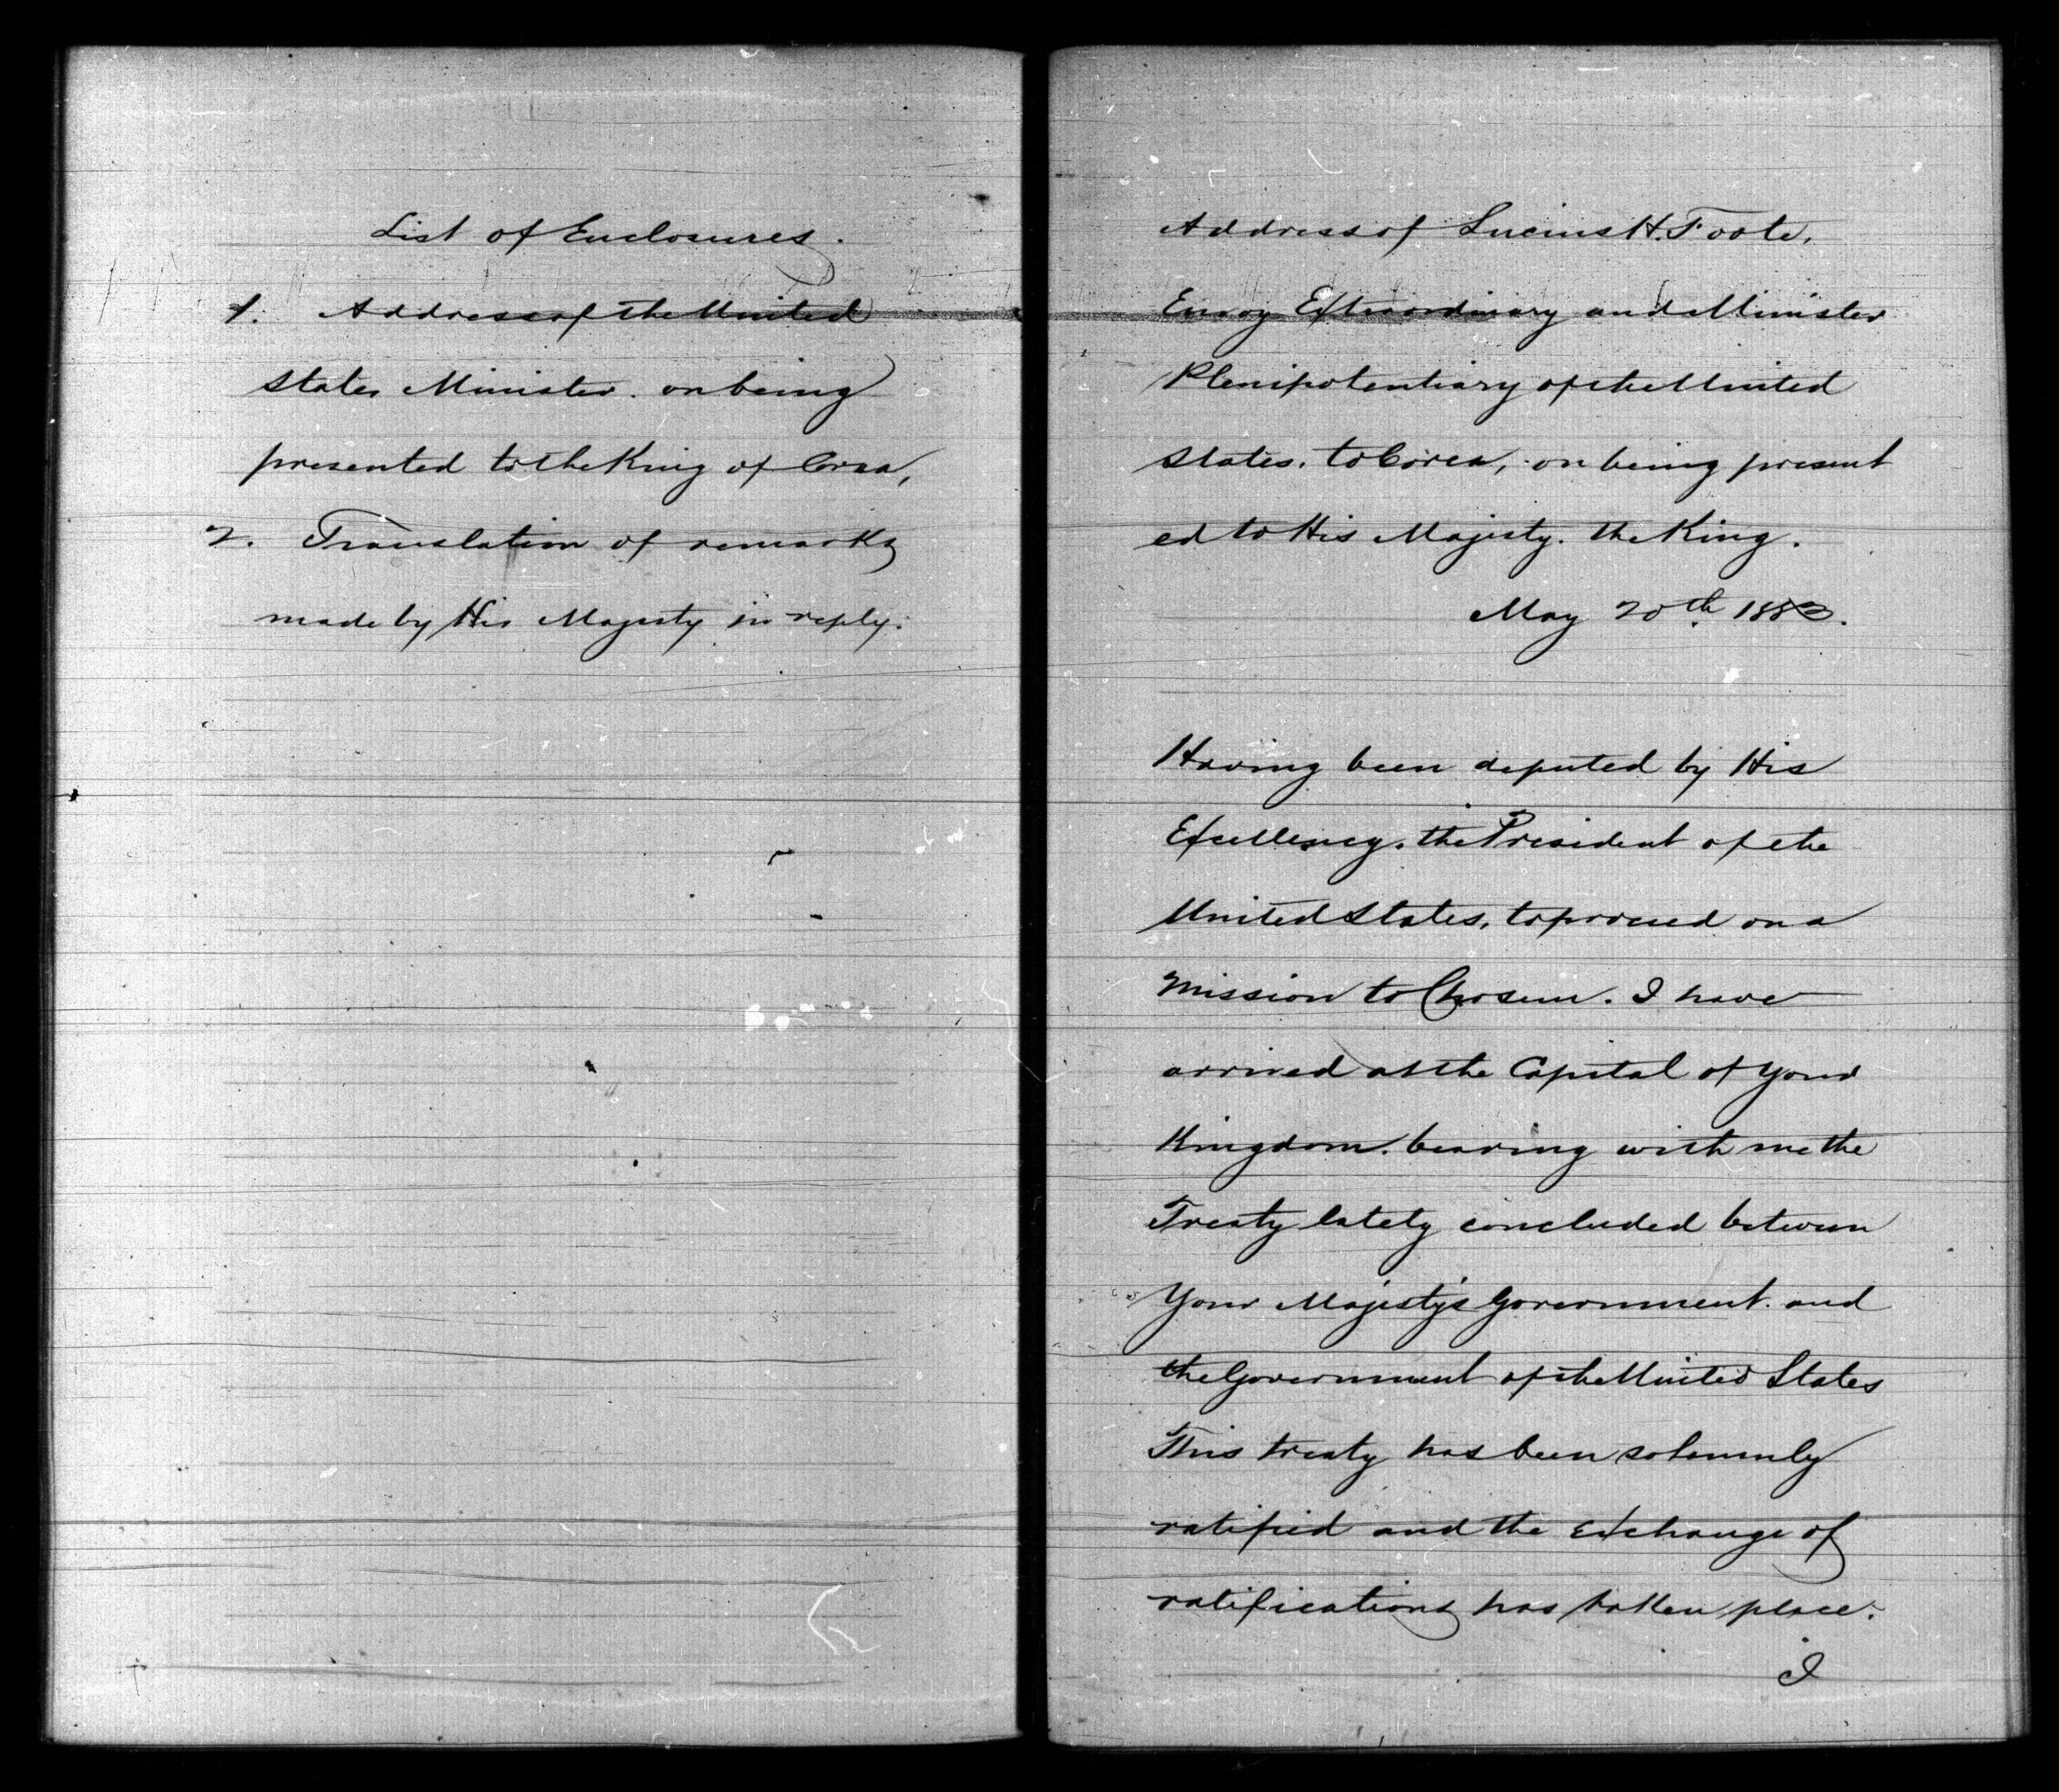 List of Enclosures.
1. Address of the United
States Minister. on being
presented to the King of Corea,
2. Translation of remarks
made by His Majesty in reply.
Address of Lucius H. Foote.
Envoy Extraordinary and Minister
Plenipotentiary of the United
States. to Corea, on being present
ed to His Majesty. the King.
May 20th 1883.
Having been deputed by His
Excellency. the President of the
United States, to proceed on a
mission to Chosen. I have
arrived at the Capital of your
Kingdom. bearing with me the
Treaty lately concluded between
Your Majesty's Government. and
the Government of the United States
This treaty has been solemnly
ratified and the exchange of
ratifications has taken place.
I